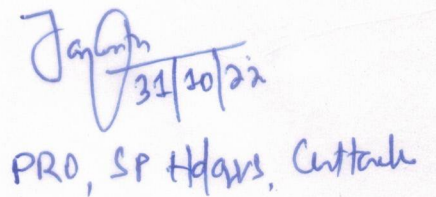 31/10/22
PRO, SP Hdqrs, Cuttack